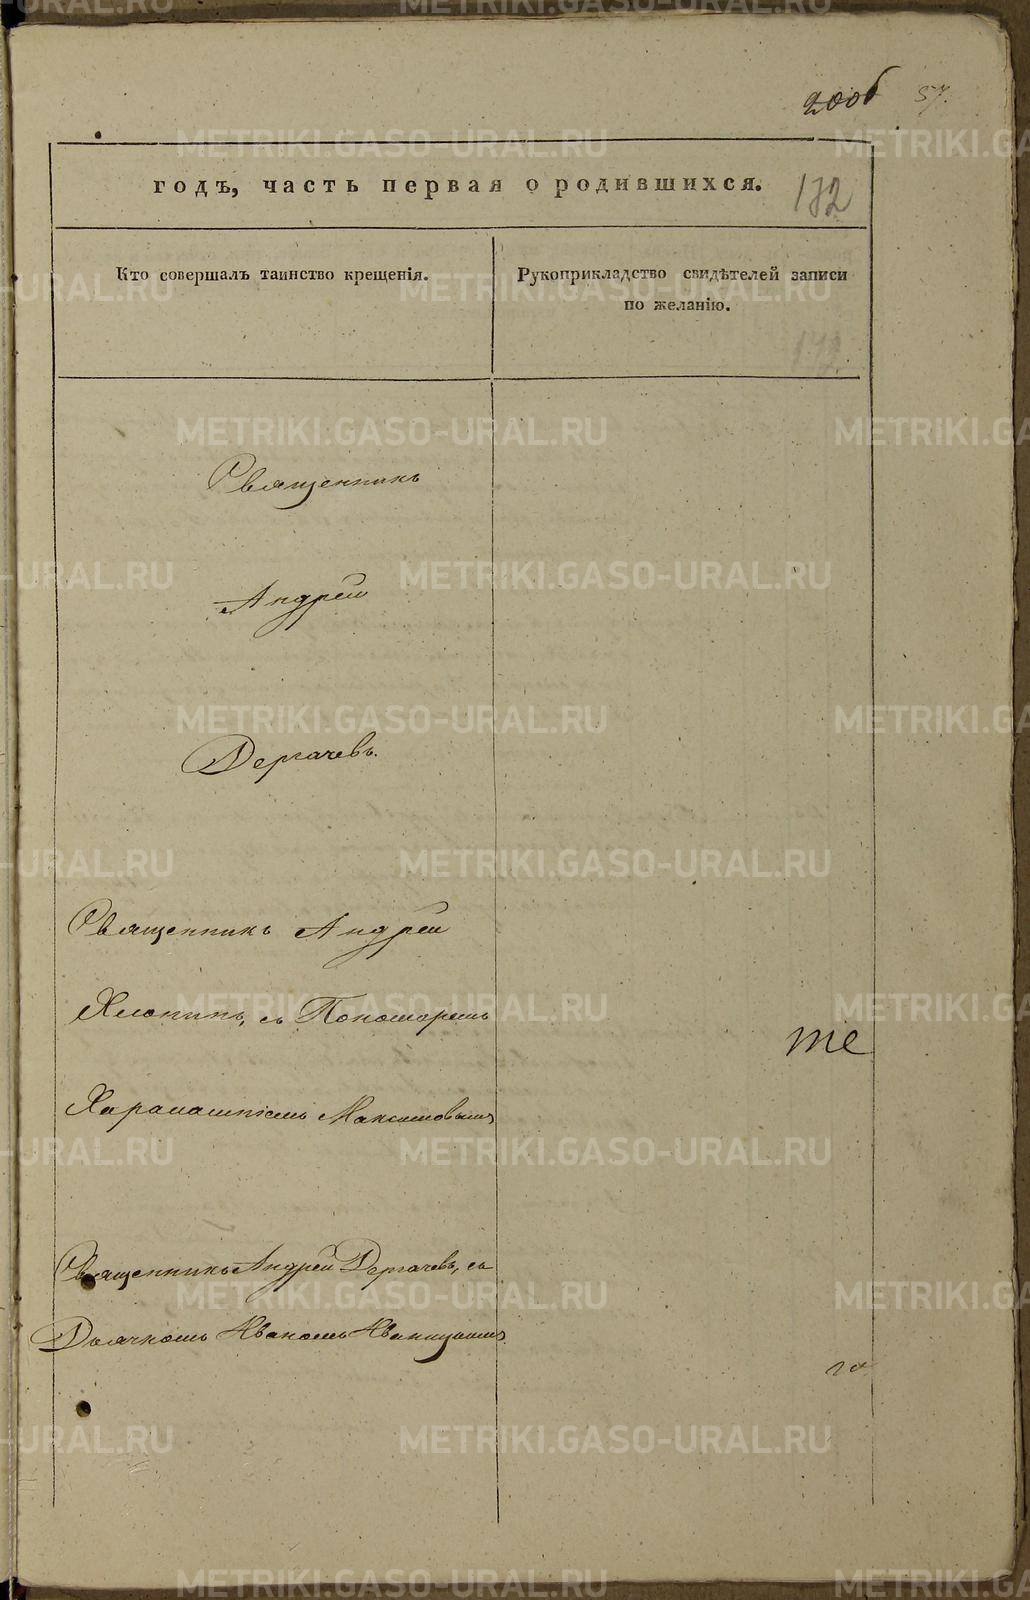 2006 57.
годъ, часть первая о родившихся. 172
Кто совершалъ таинство крещенія.
Рукоприкладство свидѣтелей записи
по желанію.
172
Священникъ
Андрей
Дергачевъ.
Священникъ Андрей
Хлопинъ, съ Пономаремъ
те
Харалампіемъ Максимовымъ
Священникъ Андрей Дергачевъ, съ
Дьячкомъ Иваномъ
METRIKI.GASO-URAL.RU